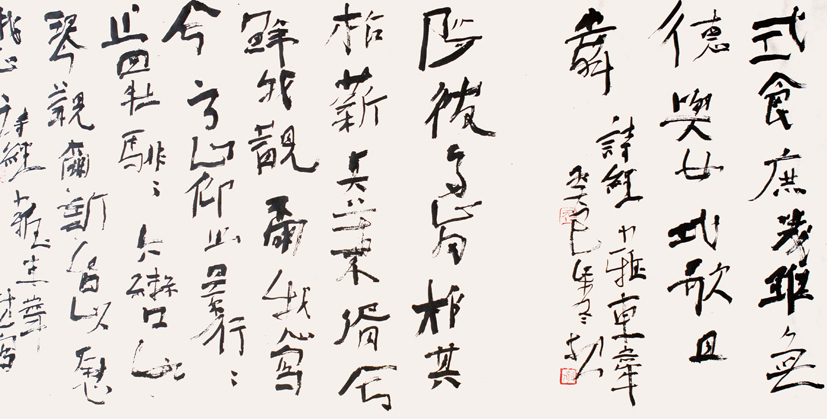 式食庶幾雖無
德與女式歌且
舞
詩經小雅車舝
癸巳年冬
陟彼高岡析其
柞薪其葉湑兮
鮮我覯爾我心寫
兮高山仰止景行〻
止四牡騑〻六轡如
琴覯爾新昏以慰
我心詩經小雅車舝